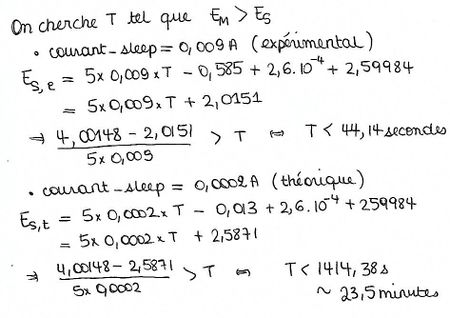 On cherche T tel que E_M > E_S
• courant_sleep = 0,009A (expérimental)
E_S,e = 5x 0,009 x T - 0,585 + 2,6.10^-4 + 2,59984
= 5x 0,009 x T + 2,0151
⇒ (4,00148 - 2,0151) / (5x 0,009) > T ⇔ T < 44,14 secondes
• courant_sleep = 0,0002A (théorique)
E_S,t = 5x 0,0002 x T - 0,013 + 2,6.10^-4 + 259984
= 5x 0,0002 x T + 2,5871
⇒ (4,00148 - 2,5871) / (5x 0,0002) > T ⇔ T < 1414,38 s
~ 23,5 minutes